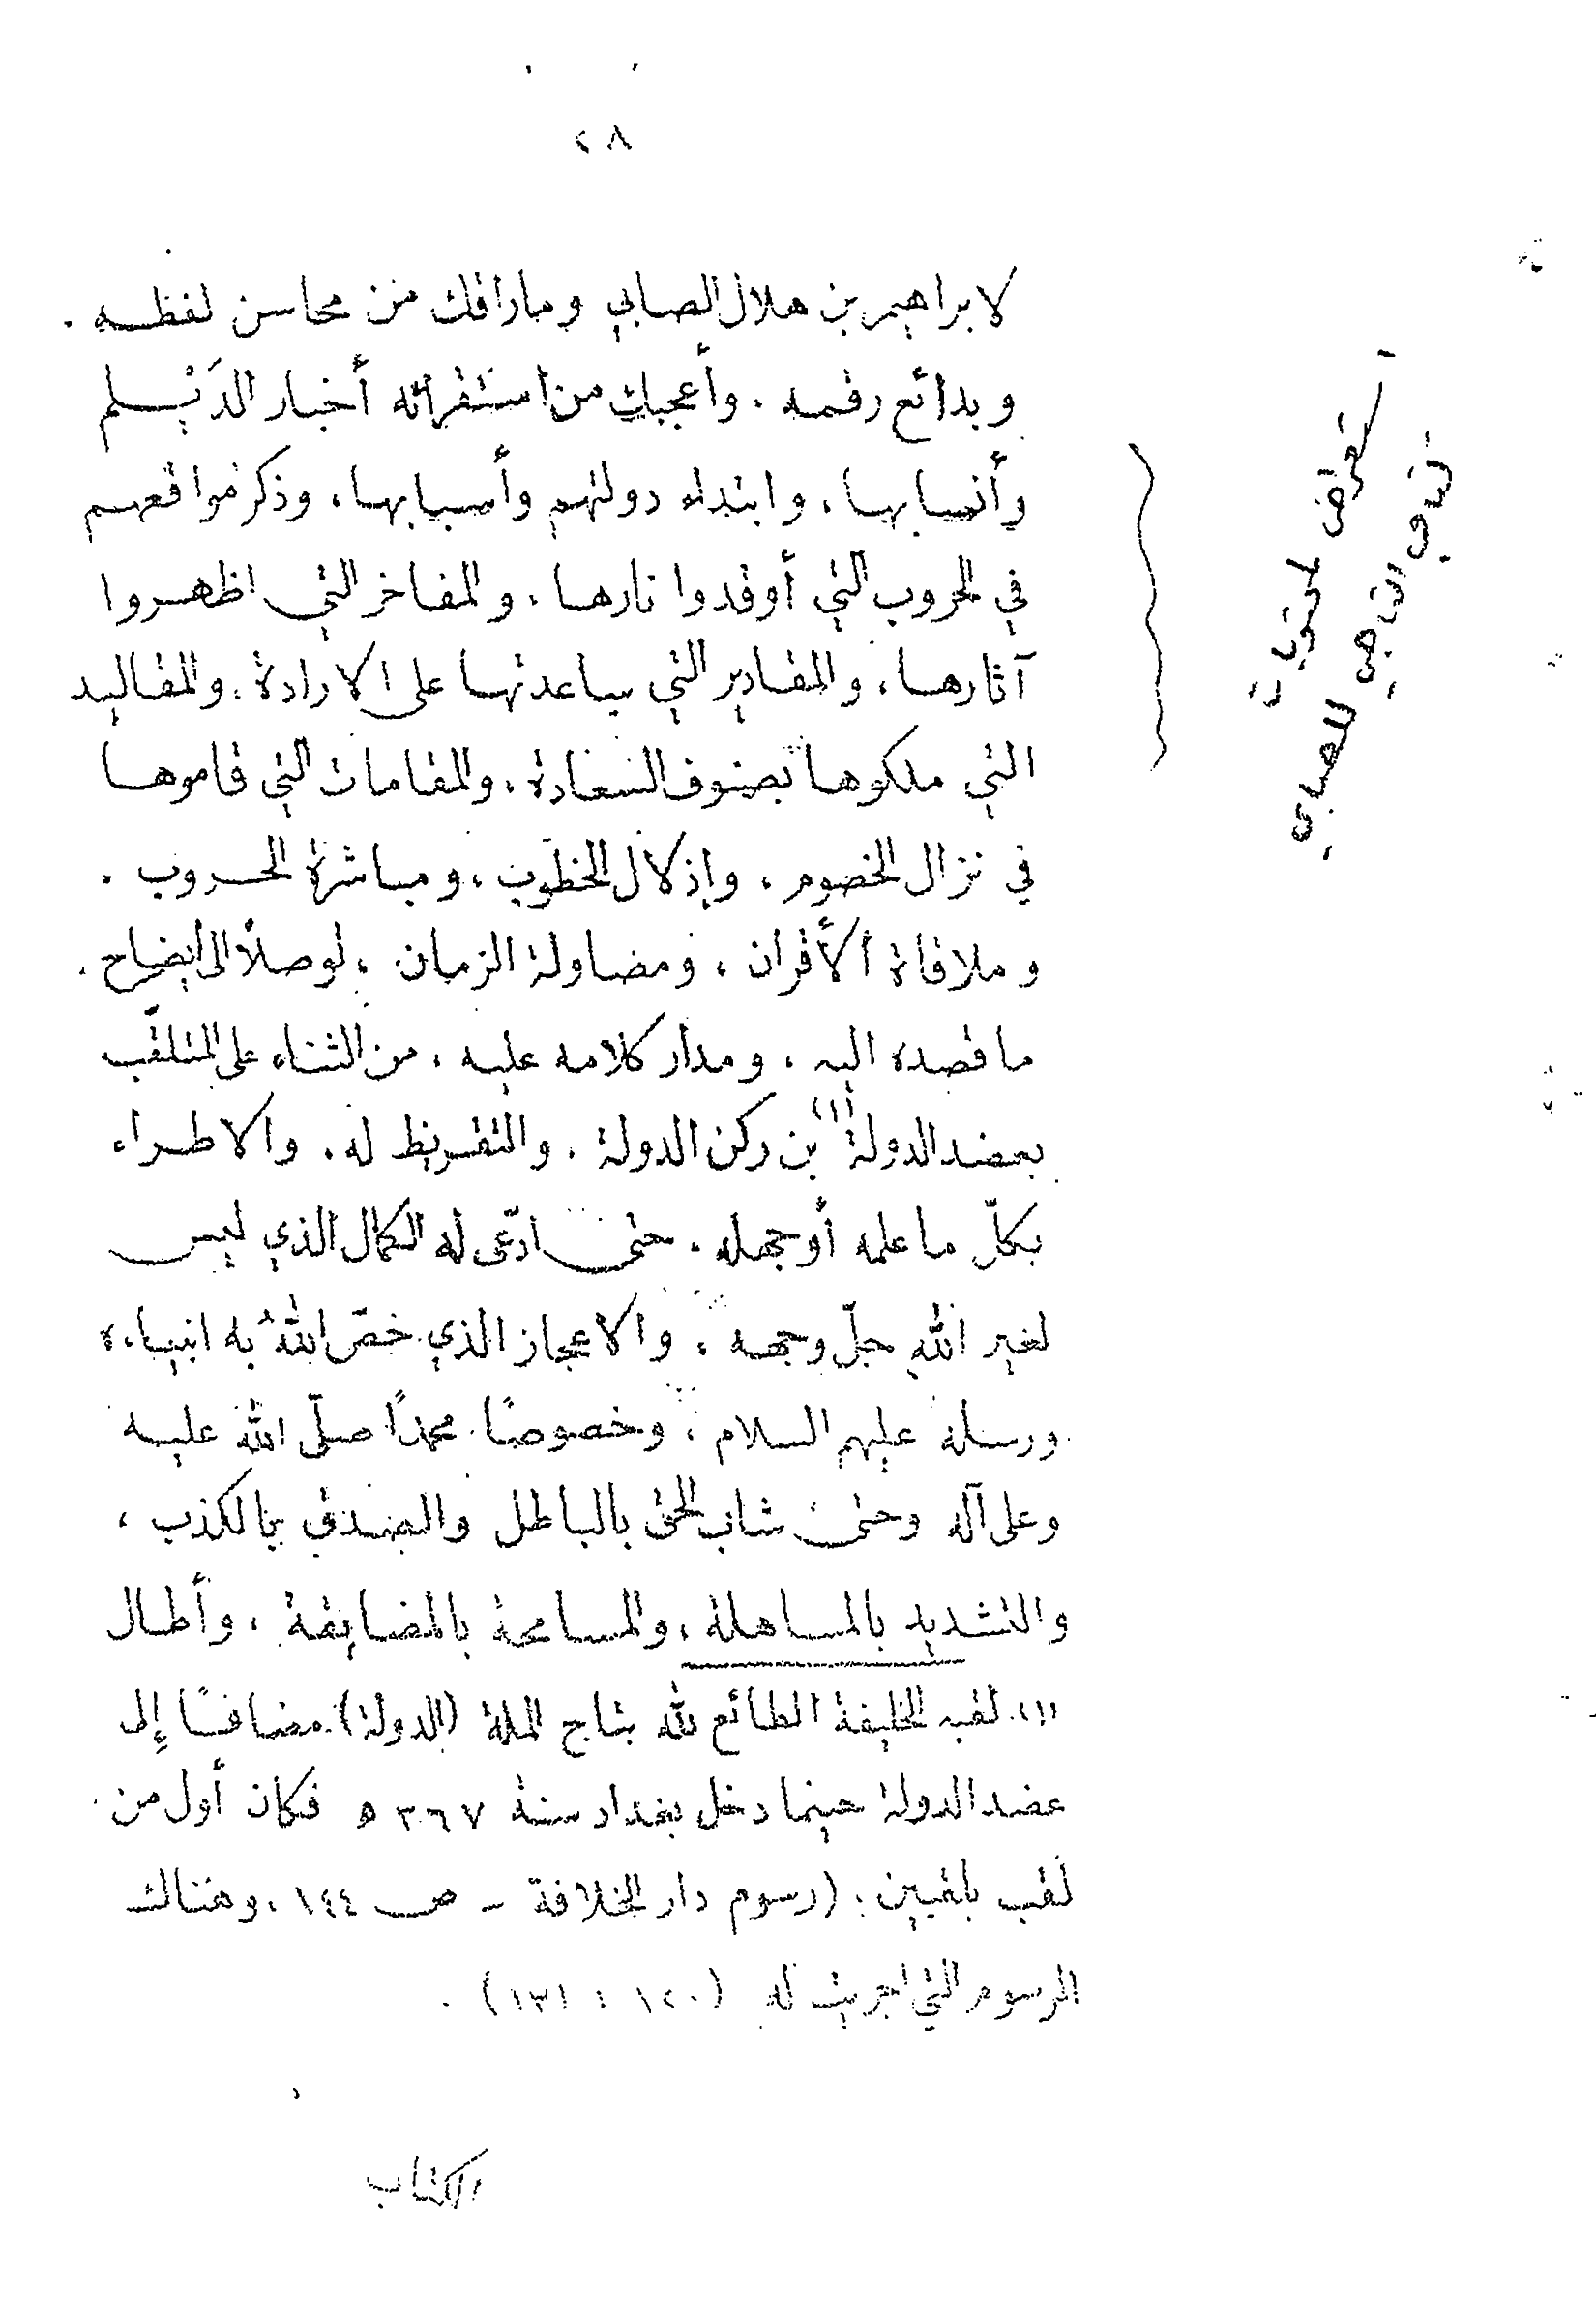 ٢٨
لابراهيم بن هلال الصابي وماراقك من محاسن لفظه .
وبدائع رقمه . وأعجبك من استقرائه أخبار الدَيْلم
وأنسابها ، وابتداء دولتهم وأسبابها ، وذكر مواقعهم
في الحروب التي أوقدوا نارها ، والمفاخر التي اظهروا
آثارها ، والمقادير التي ساعدتها على الارادة . والمقاليد
التي ملكوها بصنوف السعادة ، والمقامات التي قاموها
في نزال الخصوم ، وإذلال الخطوب ، ومباشرة الحروب .
وملاقاة الأقران ، ومضاولة الزمان ، توصلاً الى ايضاح .
ما قصده اليه ، ومدار كلامه عليه ، من الثناء على المتلقّب
بعضد الدولة (١) بن ركن الدولة . والتقريظ له . والاطراء
بكلّ ما علمه أو جهله . حتى ادّعى له الكمال الذي ليس
لغير الله جلّ وجهه . والاعجاز الذي خصّ اللهُ به انبياءه
ورسله عليهم السلام ، وخصوصًا محمدًا صلّى الله عليه
وعلى آله وحتى شاب الحق بالباطل والصدق بالكذب ،
والتشديد بالمساهلة ، والمسامحة بالمضايقة ، وأطال
(١) لقبه الخليفة الطائع لله بتاج الملة (الدولة) مضافًا إلى
عضد الدولة حينما دخل بغداد سنة ٣٦٧ ه فكان أول من
لقب بلقبين . (رسوم دار الخلافة - ص ١٤٤ ، وهناك
الرسوم التي اجريت له (١٢٠ : ١٣١) .
الكتاب
استعراض لمحتويات
كتاب التاجي للصابي